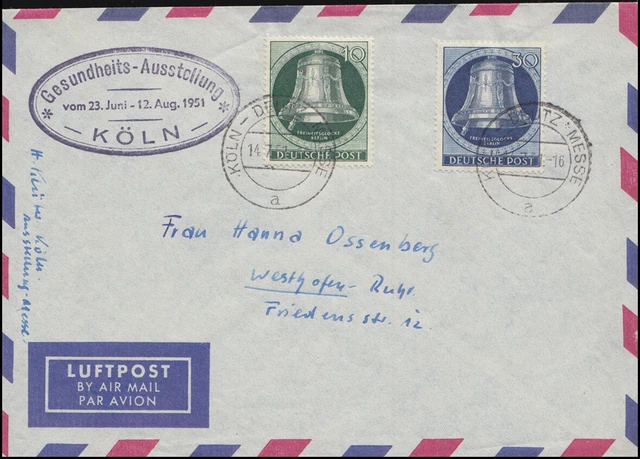 * Gesundheits-Ausstellung *
vom 23. Juni - 12. Aug. 1951
- KÖLN -
10
FREIHEITSGLOCKE
BERLIN
DEUTSCHE POST
30
FREIHEITSGLOCKE
BERLIN
DEUTSCHE POST
KÖLN - DE SSE
14.7.
a
TZ-MESSE
-16
a
Frau Hanna Ossenberg
Westhofen-Ruhr.
Friedensstr. 12.
Köln.
Ausstellung-Messe.
LUFTPOST
BY AIR MAIL
PAR AVION